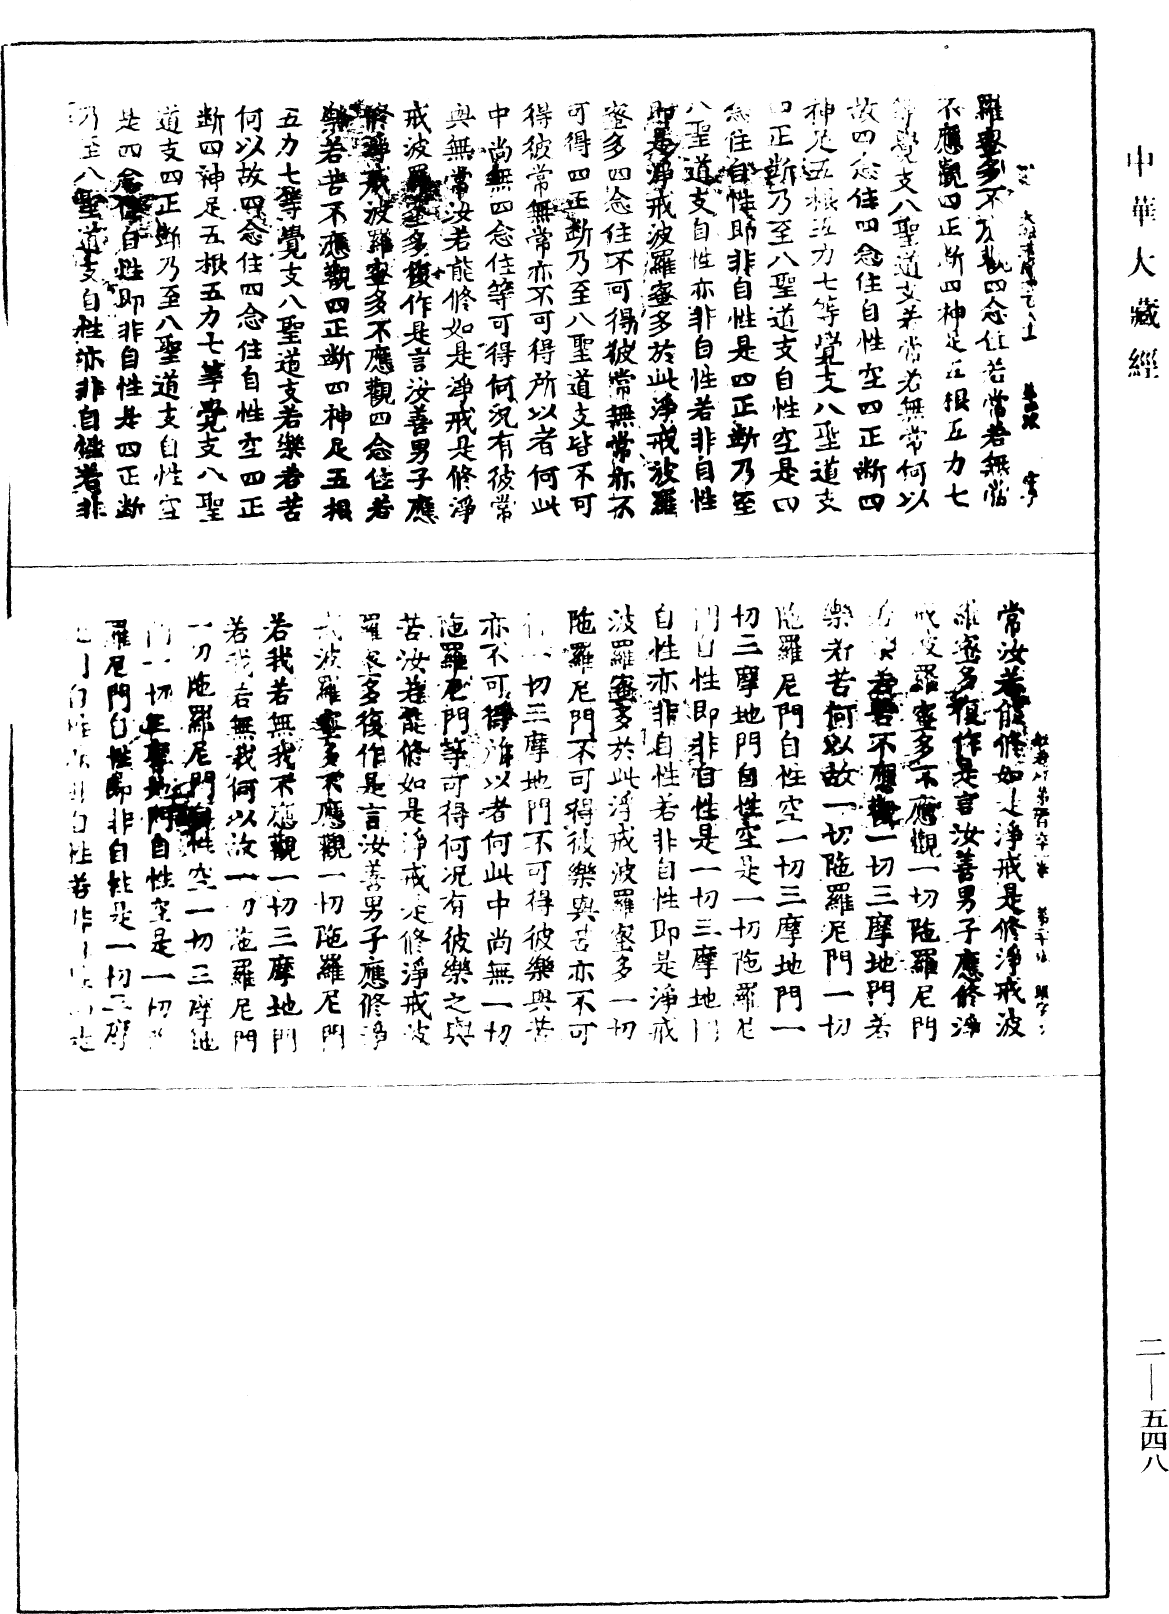 中華大藏經
羅蜜多不應觀四念住若常若無常
不應觀四正斷四神足五根五力七
等覺支八聖道支若常若無常何以
故四念住四念住自性空四正斷四
神足五根五力七等覺支八聖道支
四正斷乃至八聖道支自性空是四
念住自性即非自性是四正斷乃至
八聖道支自性亦非自性若非自性
即是淨戒波羅蜜多於此淨戒波羅
蜜多四念住不可得彼常無常亦不
可得四正斷乃至八聖道支皆不可
得彼常無常亦不可得所以者何此
中尚無四念住等可得何況有彼常
與無常汝若能修如是淨戒是修淨
戒波羅蜜多復作是言汝善男子應
修淨戒波羅蜜多不應觀四念住若
樂若苦不應觀四正斷四神足五根
五力七等覺支八聖道支若樂若苦
何以故四念住四念住自性空四正
斷四神足五根五力七等覺支八聖
道支四正斷乃至八聖道支自性空
是四念住自性即非自性是四正斷
乃至八聖道支自性亦非自性若非
常汝若能修如是淨戒是修淨戒波
羅蜜多復作是言汝善男子應修淨
戒波羅蜜多不應觀一切陁羅尼門
若樂若苦不應觀一切三摩地門若
樂若苦何以故一切陁羅尼門一切
陁羅尼門自性空一切三摩地門一
切三摩地門自性空是一切陁羅尼
門自性即非自性是一切三摩地門
自性亦非自性若非自性即是淨戒
波羅蜜多於此淨戒波羅蜜多一切
陁羅尼門不可得彼樂與苦亦不可
得一切三摩地門不可得彼樂與苦
亦不可得所以者何此中尚無一切
陁羅尼門等可得何況有彼樂之與
苦汝若能修如是淨戒是修淨戒波
羅蜜多復作是言汝善男子應修淨
戒波羅蜜多不應觀一切陁羅尼門
若我若無我不應觀一切三摩地門
若我若無我何以故一切陁羅尼門
一切陁羅尼門自性空一切三摩地
門一切三摩地門自性空是一切陁
羅尼門自性即非自性是一切三摩
地門自性亦非自性若非自性即是
二—五四八